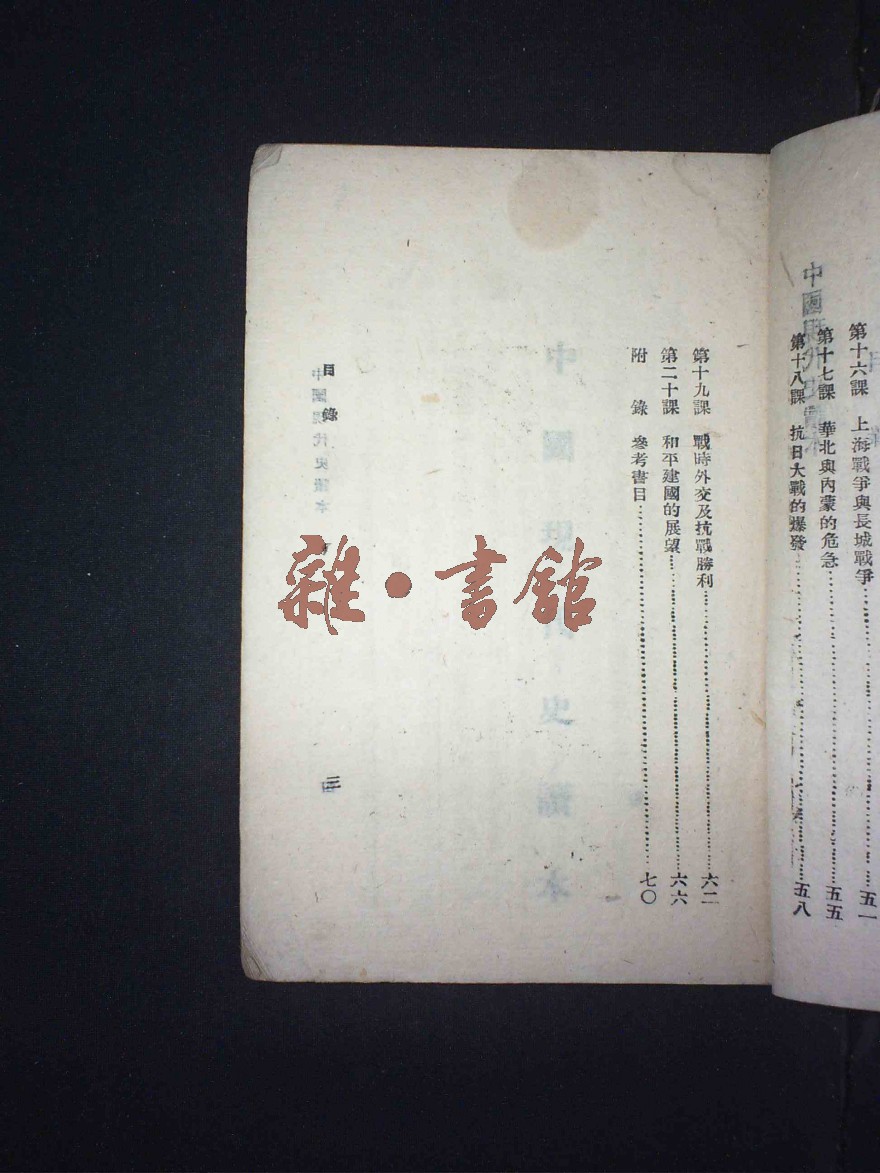 第十六課　上海戰爭與長城戰爭……五一
第十七課　華北與內蒙的危急……五五
第十八課　抗日大戰的爆發……五八
中國
第十九課　戰時外交及抗戰勝利……六二
第二十課　和平建國的展望……六六
附　錄　參考書目……七〇
中國現代史讀本
目錄
中國現代史讀本
三
雜·書舘